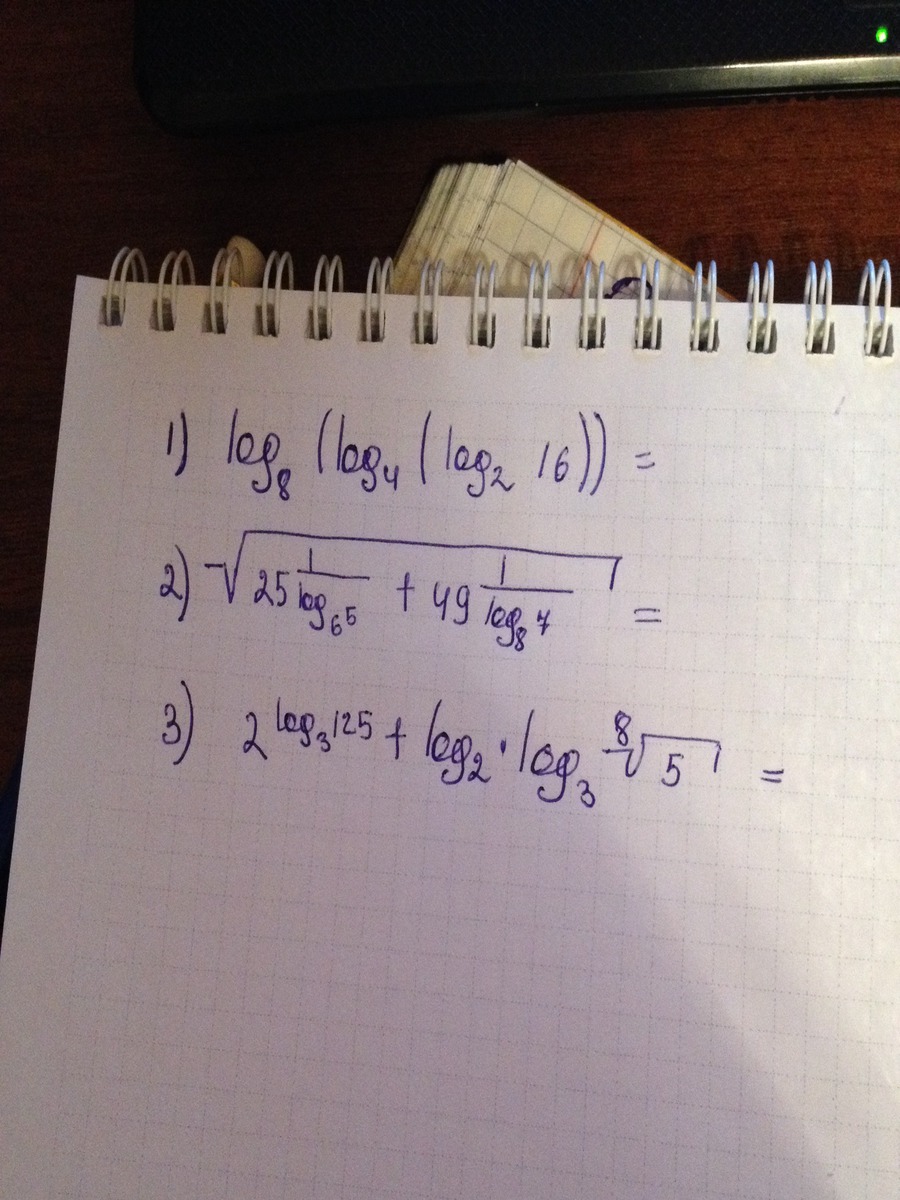 1) log₈ (log₄ (log₂ 16)) =
2) √(25^(1/log₆5) + 49^(1/log₈7)) =
3) 2^(log₃125) + log₂ · log₃ ⁸√5 =